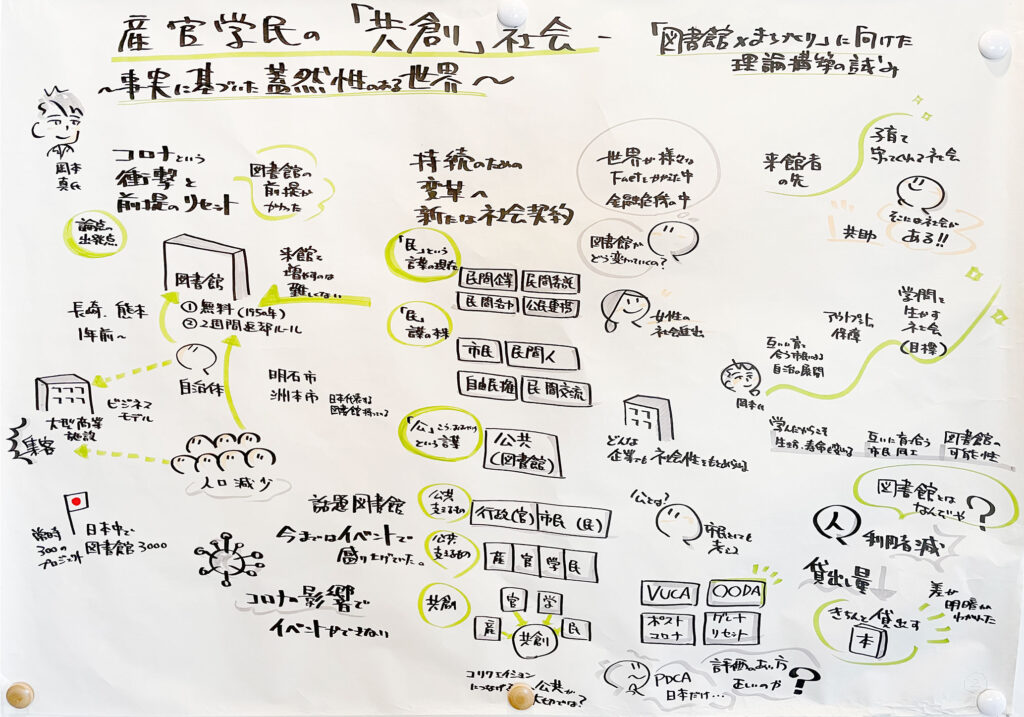 産官学民の「共創」社会 -
〜事実に基づいた蓋然性のある世界〜
「図書館×まちづくり」に向けた
理論構築の試み
岡本
真氏
コロナという
衝撃と
前提のリセット
図書館の
前提が
かわった
論点の
出発点
図書館
①無料(1950年)
②2週間返却ルール
来館を
増やすのは
難しくない
長崎、熊本
1年前〜
自治体
大型商業
施設
ビジネス
モデル
集客
明石市
洲本市
人口減少
常時
300の
プロジェクト
日本中で
図書館3000
話題図書館
今まではイベントで
盛り上げていた。
コロナ影響で
イベントができない
持続のための
変革へ
新たな社会契約
「民」という
言葉の現在
民間企業
民間委託
民間活力
公民連携
「民」
市民
民間人
自由民権
民間交流
「公」
という言葉
公共
(図書館)
公共
支えるもの
行政(官)
市民(民)
公共
支えるもの
産
官
学
民
共創
産
官
学
民
共創
コ・クリエイション
につなげる
公共が
世界が様々な
金融危機の中
図書館が
どう変わっていくの?
女性の
社会進出
どんな
企業でも社会性をもとめられる
公とは?
市民とも
考える
VUCA
OODA
ポスト
コロナ
グレート
リセット
PDCA
日本だけ…
評価のあり方
正しいのか?
来館者
の先
子育て
守ってくれる社会
共助
そこには社会が
ある!!
学問を
生かす
社会
(目標)
アウトプットの
保障
互いに育ち
合う市民による
自治の展開
岡本氏
学んだからこそ
互いに育ち合う
市民同士
図書館の
可能性
図書館とは
なんぞや?
人
利用者減
貸出し量
きちんと貸出す
本
差が
明暗が
わかれた